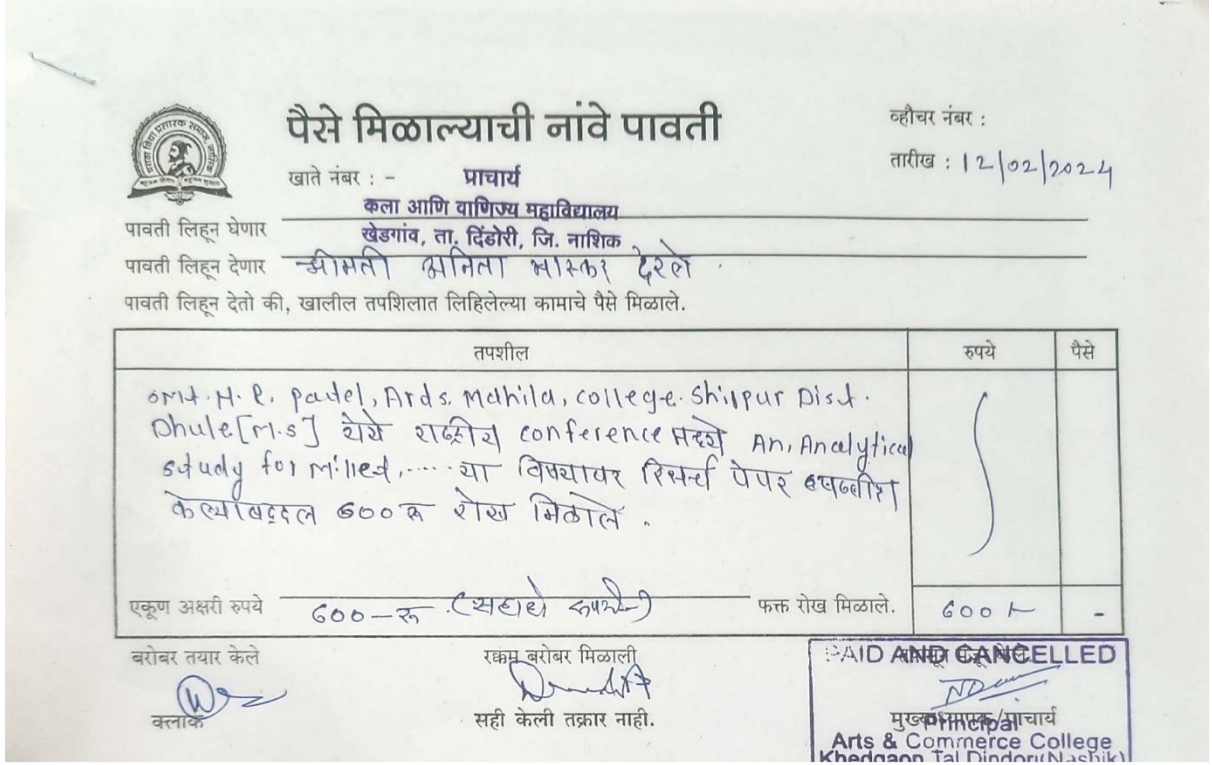 पैसे मिळाल्याची नांवे पावती
व्हौचर नंबर :
तारीख : 12/02/2024
खाते नंबर : - प्राचार्य
कला आणि वाणिज्य महाविद्यालय
पावती लिहून घेणार खेडगांव, ता. दिंडोरी, जि. नाशिक
पावती लिहून देणार श्रीमती अनिता भास्कर देरले
पावती लिहून देतो की, खालील तपशिलात लिहिलेल्या कामाचे पैसे मिळाले.
तपशील रुपये पैसे
smt. H. R. patel, Arts. Mahila, college. Shirpur Dist.
Dhule [M.S] येथे राष्ट्रीय conference मध्ये An, Analytical
study for millet, .... या विषयावर रिसर्च पेपर
केल्याबद्दल 600 रु रोख मिळाले.
एकूण अक्षरी रुपये 600-रु. (सहाशे रुपये) फक्त रोख मिळाले. 600 -
बरोबर तयार केले रकम बरोबर मिळाली PAID AND CANCELLED
क्लार्क सही केली तक्रार नाही. मुख्याध्यापक/प्राचार्य
Principal
Arts & Commerce College
Khedgaon Tal Dindori(Nashik)